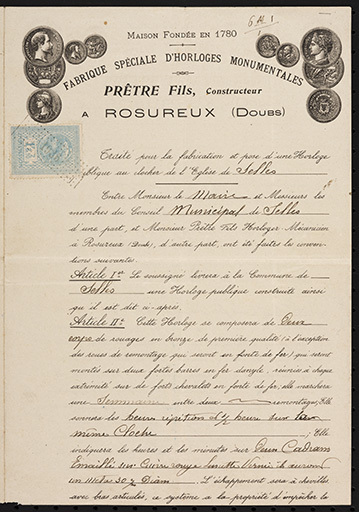 6.M.1
1
MAISON FONDÉE EN 1780
FABRIQUE SPÉCIALE D'HORLOGES MONUMENTALES
PRÊTRE Fils, Constructeur
A ROSUREUX (DOUBS)
Traité pour la fabrication et pose d'une Horloge
publique au clocher de l'Eglise de Selles
Entre Monsieur le Maire et Messieurs les
membres du Conseil Municipal de Selles
d'une part, et Monsieur Prêtre Fils Horloger Mécanicien
à Rosureux (Doubs), d'autre part, ont été faites les conven-
tions suivantes.
Article Ier Le soussigné livrera à la Commune de
Selles une Horloge publique construite ainsi
qu'il est dit ci-après.
Article IIe Cette Horloge se composera de Deux
corps de rouages en bronze de première qualité (à l'exception
des roues de remontage qui seront en fonte de fer) qui seront
montés sur deux fortes barres en fer simple, réunies à chaque
extrémité sur de forts chevalets en fonte de fer, elle marchera
une Semaine entre deux remontages; Elle
sonnera les heures répétition d½ heure sur la
même Cloche ; Elle
indiquera les heures et les minutes sur Deux Cadrans
Emaillé sur Cuivre rouge
un mètre 30 % Diam. L'échappement sera à chevilles
avec bras articulés, ce système a la propriété d'empêcher la